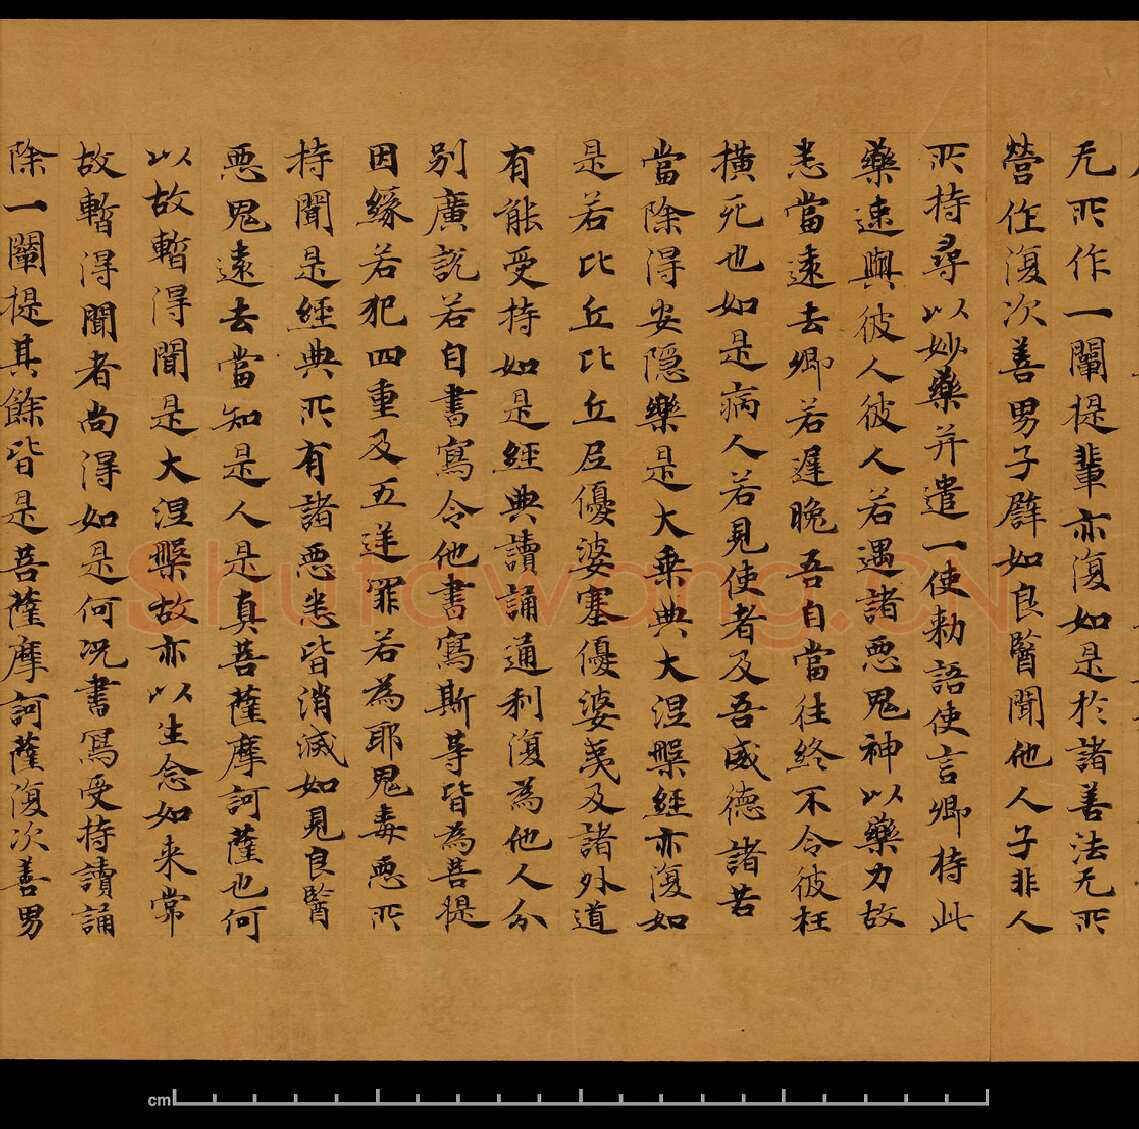 无所作一闡提輩亦復如是於諸善法无所
營作復次善男子譬如良醫聞他人子非人
所持尋以妙藥并遣一使勑語使言卿持此
藥速與彼人彼人若遇諸惡鬼神以藥力故
悉當遠去卿若遲晚吾自當往終不令彼枉
橫死也如是病人若見使者及吾威德諸苦
當除得安隱樂是大乘典大涅槃經亦復如
是若比丘比丘尼優婆塞優婆夷及諸外道
有能受持如是經典讀誦通利復為他人分
別廣說若自書寫令他書寫斯等皆為菩提
因緣若犯四重及五逆罪若為耶鬼毒惡所
持聞是經典所有諸惡悉皆消滅如見良醫
惡鬼遠去當知是人是真菩薩摩訶薩也何
以故暫得聞是大涅槃故亦以生念如来常
故暫得聞者尚得如是何况書寫受持讀誦
除一闡提其餘皆是菩薩摩訶薩復次善男
Shufawang.CN
cm